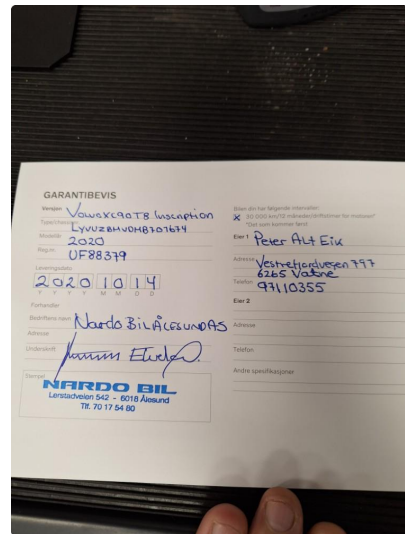 GARANTIBEVIS
Versjon Volvo XC90 T8 Inscription
Type/chassisnr.
Modellår 2020
Reg.nr. UF88379
Leveringsdato
2020 10 14
Y Y Y Y M M D D
Forhandler
Bedriftens navn Nardo Bil Ålesund AS
Adresse
Underskrift
Stempel
NARDO BIL
Lerstadveien 542 - 6018 Ålesund
Tlf. 70 17 54 80
Bilen din har følgende intervaller:
X 30 000 km/12 måneder/driftstimer for motoren*
*Det som kommer først
Eier 1 Peter Alt Eik
Adresse Vestrefjordvegen 797
6265 Vatne
Telefon 97110355
Eier 2
Adresse
Telefon
Andre spesifikasjoner